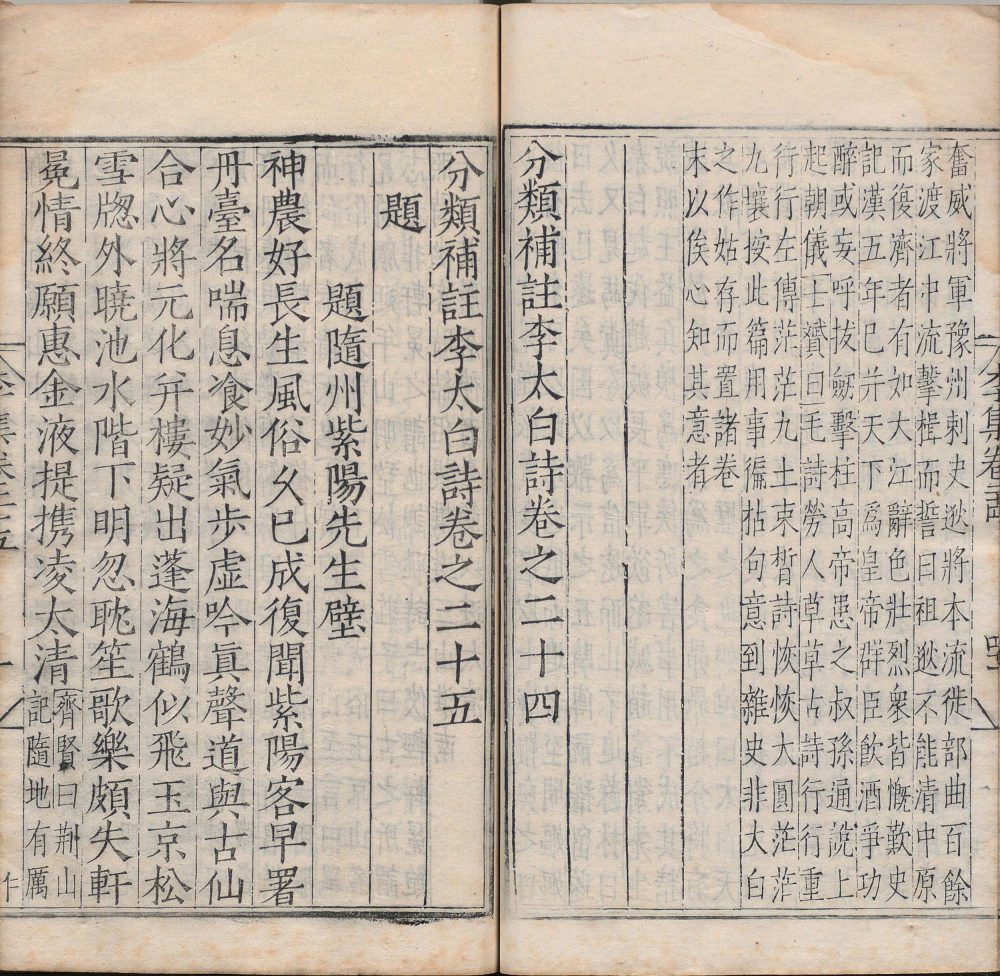 奮威將軍豫州刺史逖將本流徙部曲百餘
家渡江中流擊楫而誓曰祖逖不能清中原
而復濟者有如大江辭色壯烈衆皆慨歎史
記漢五年已并天下爲皇帝群臣飲酒爭功
醉或妄呼拔劒擊柱高帝患之叔孫通說上
起朝儀士贇曰毛詩勞人草草古詩行行重
行行左傳茫茫九土束晳詩恢恢大圓茫茫
九壤按此篇用事徧拈句意到雜史非大白
之作姑存而置諸卷
末以俟心知其意者
分類補註李太白詩卷之二十四
分類補註李太白詩卷之二十五
題
題隨州紫陽先生壁
神農好長生風俗乆已成復聞紫陽客早署
丹臺名喘息飡妙氣步虛吟眞聲道與古仙
合心將元化并樓疑出蓬海鶴似飛玉京松
雪牎外曉池水階下明忽耽笙歌樂頗失軒
冕情終願惠金液提携凌太清
齊賢曰荆山
記隨地有厲